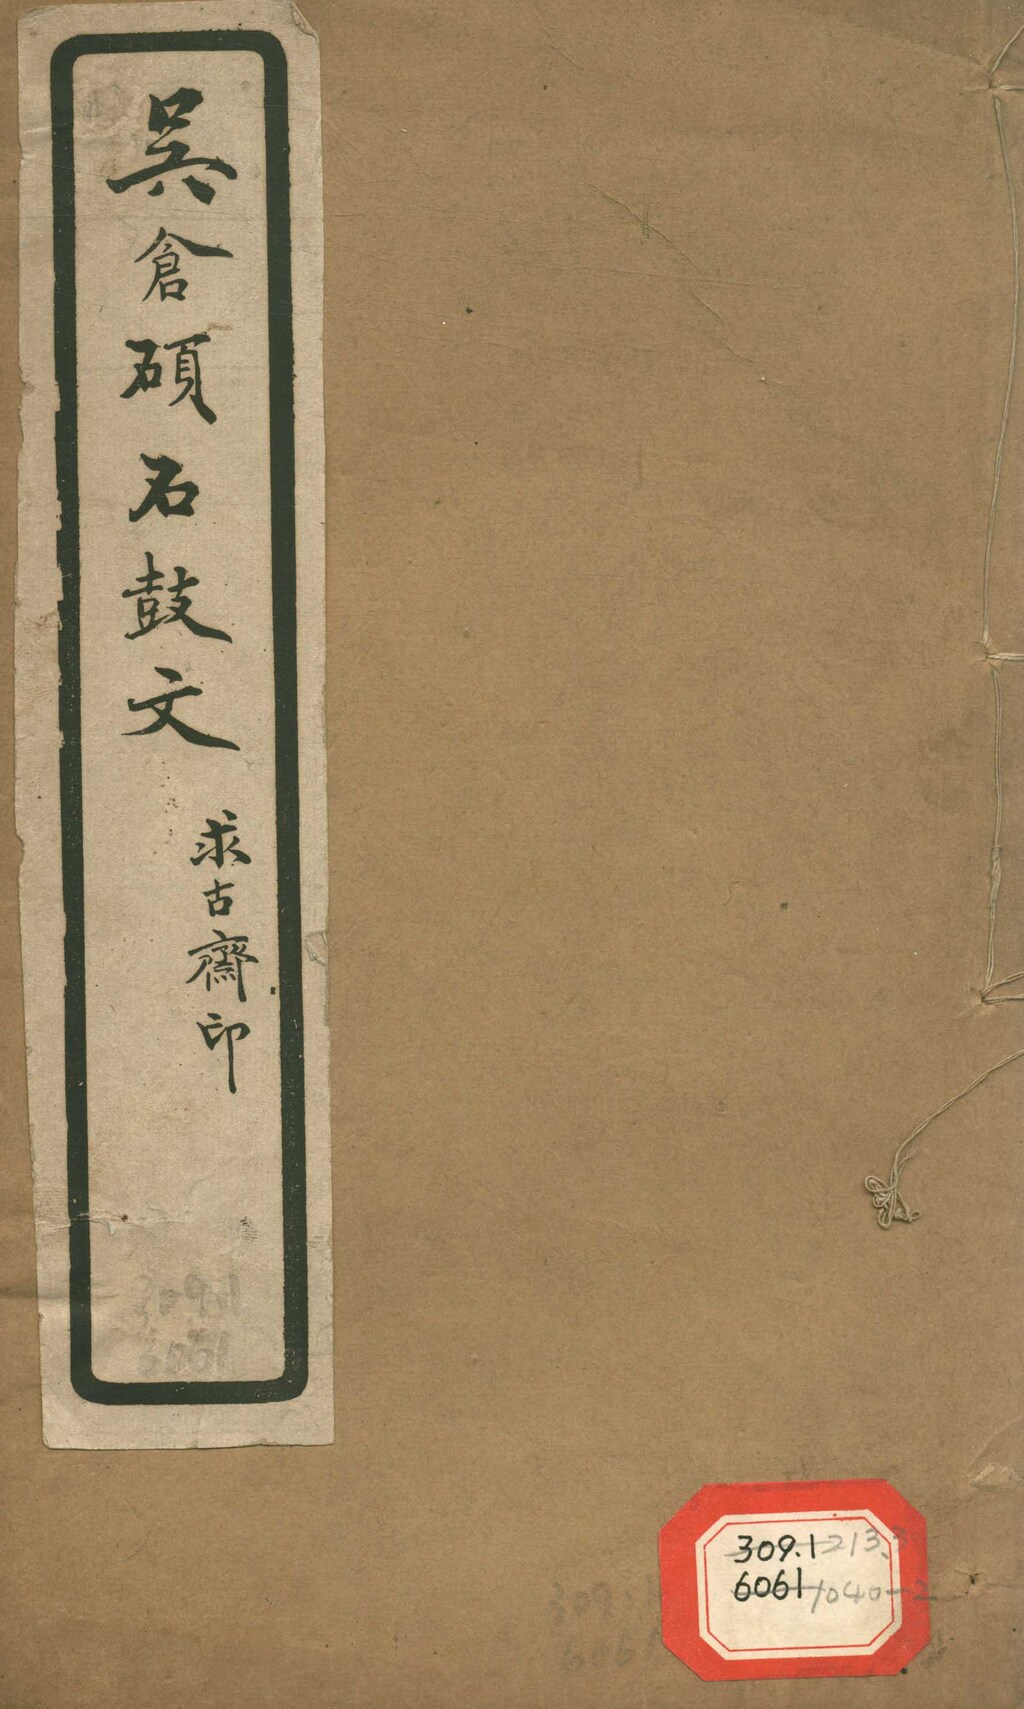 吳倉碩石鼓文
求古齋印
309.1
6061
309.1 213.3
6061 1040-2